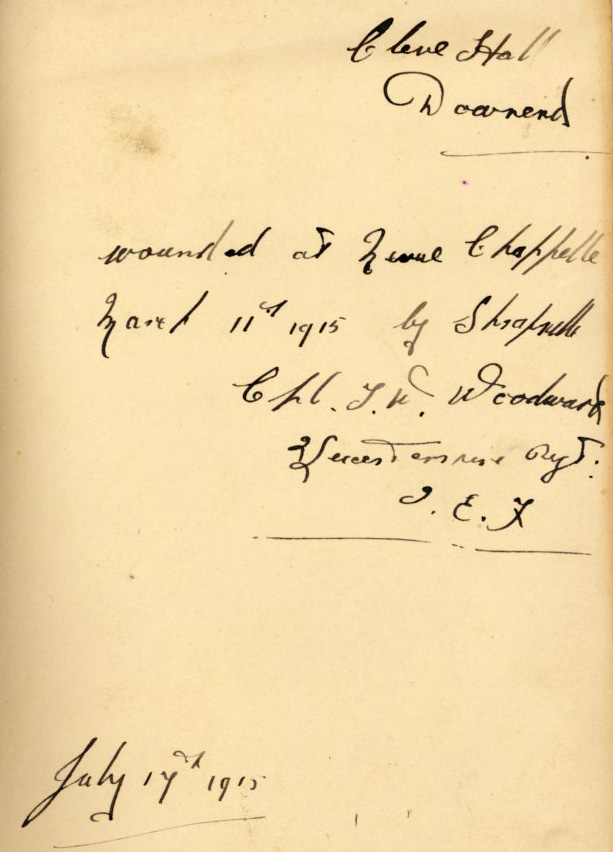 Cleve Hall
Downend
wounded at Neuve Chappelle
March 11th 1915 by Shrapnelle
Cpl. T. W. Woodward
Leicestershire Rgt.
I. E. F
July 17th 1915